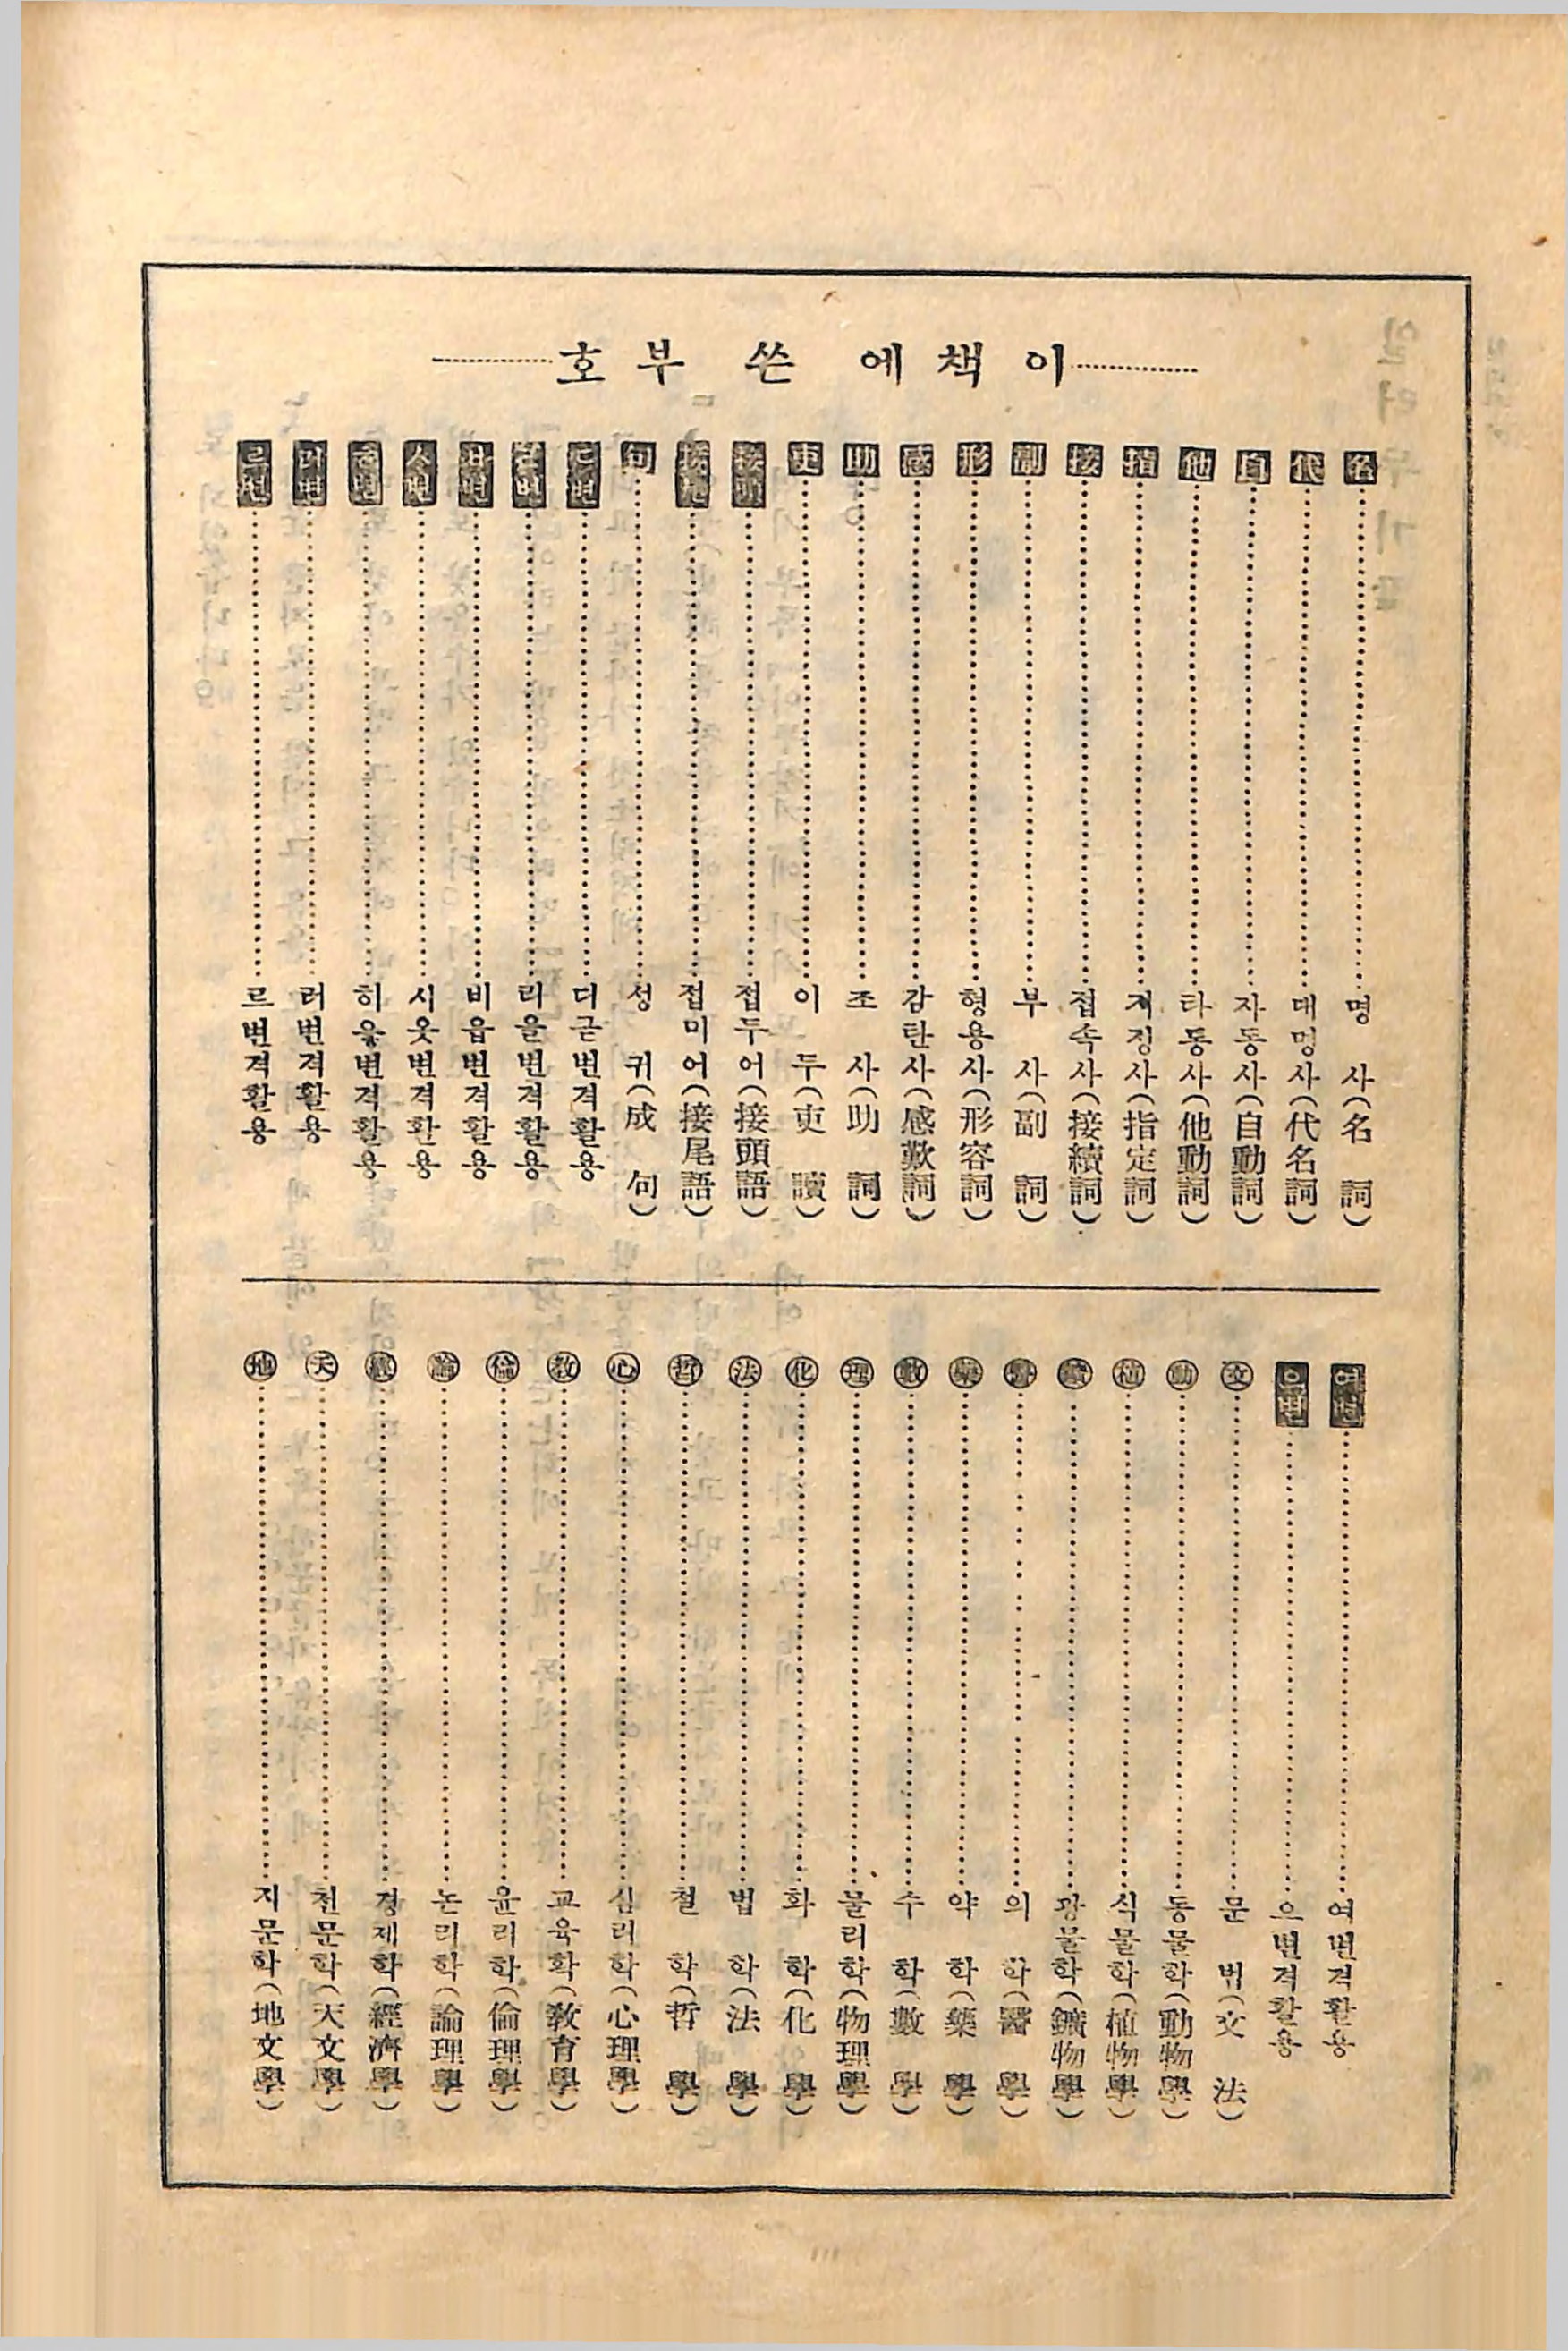 이 책 에 쓴 부 호
名……명 사(名 詞)
代……대명사(代名詞)
自……자동사(自動詞)
他……타동사(他動詞)
指……지정사(指定詞)
接……접속사(接續詞)
副……부 사(副 詞)
形……형용사(形容詞)
感……감탄사(感歎詞)
助……조 사(助 詞)
吏……이 두(吏 讀)
接頭……접두어(接頭語)
接尾……접미어(接尾語)
句……성 귀(成 句)
ㄷ변……디귿변격활용
ㄹ변……리을변격활용
ㅂ변……비읍변격활용
ㅅ변……시옷변격활용
ㅎ변……히읗변격활용
러변……러변격활용
르변……르변격활용
여변……여변격활용
으변……으변격활용
文……문 법(文 法)
動……동물학(動物學)
植……식물학(植物學)
鑛……광물학(鑛物學)
醫……의 학(醫 學)
藥……약 학(藥 學)
數……수 학(數 學)
理……물리학(物理學)
化……화 학(化 學)
法……법 학(法 學)
哲……철 학(哲 學)
心……심리학(心理學)
敎……교육학(敎育學)
倫……윤리학(倫理學)
論……논리학(論理學)
經……경제학(經濟學)
天……천문학(天文學)
地……지문학(地文學)